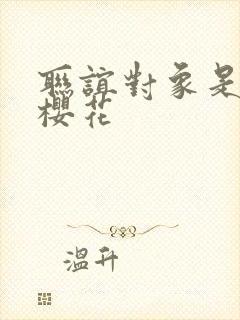 聯誼對象是
櫻花
溫升